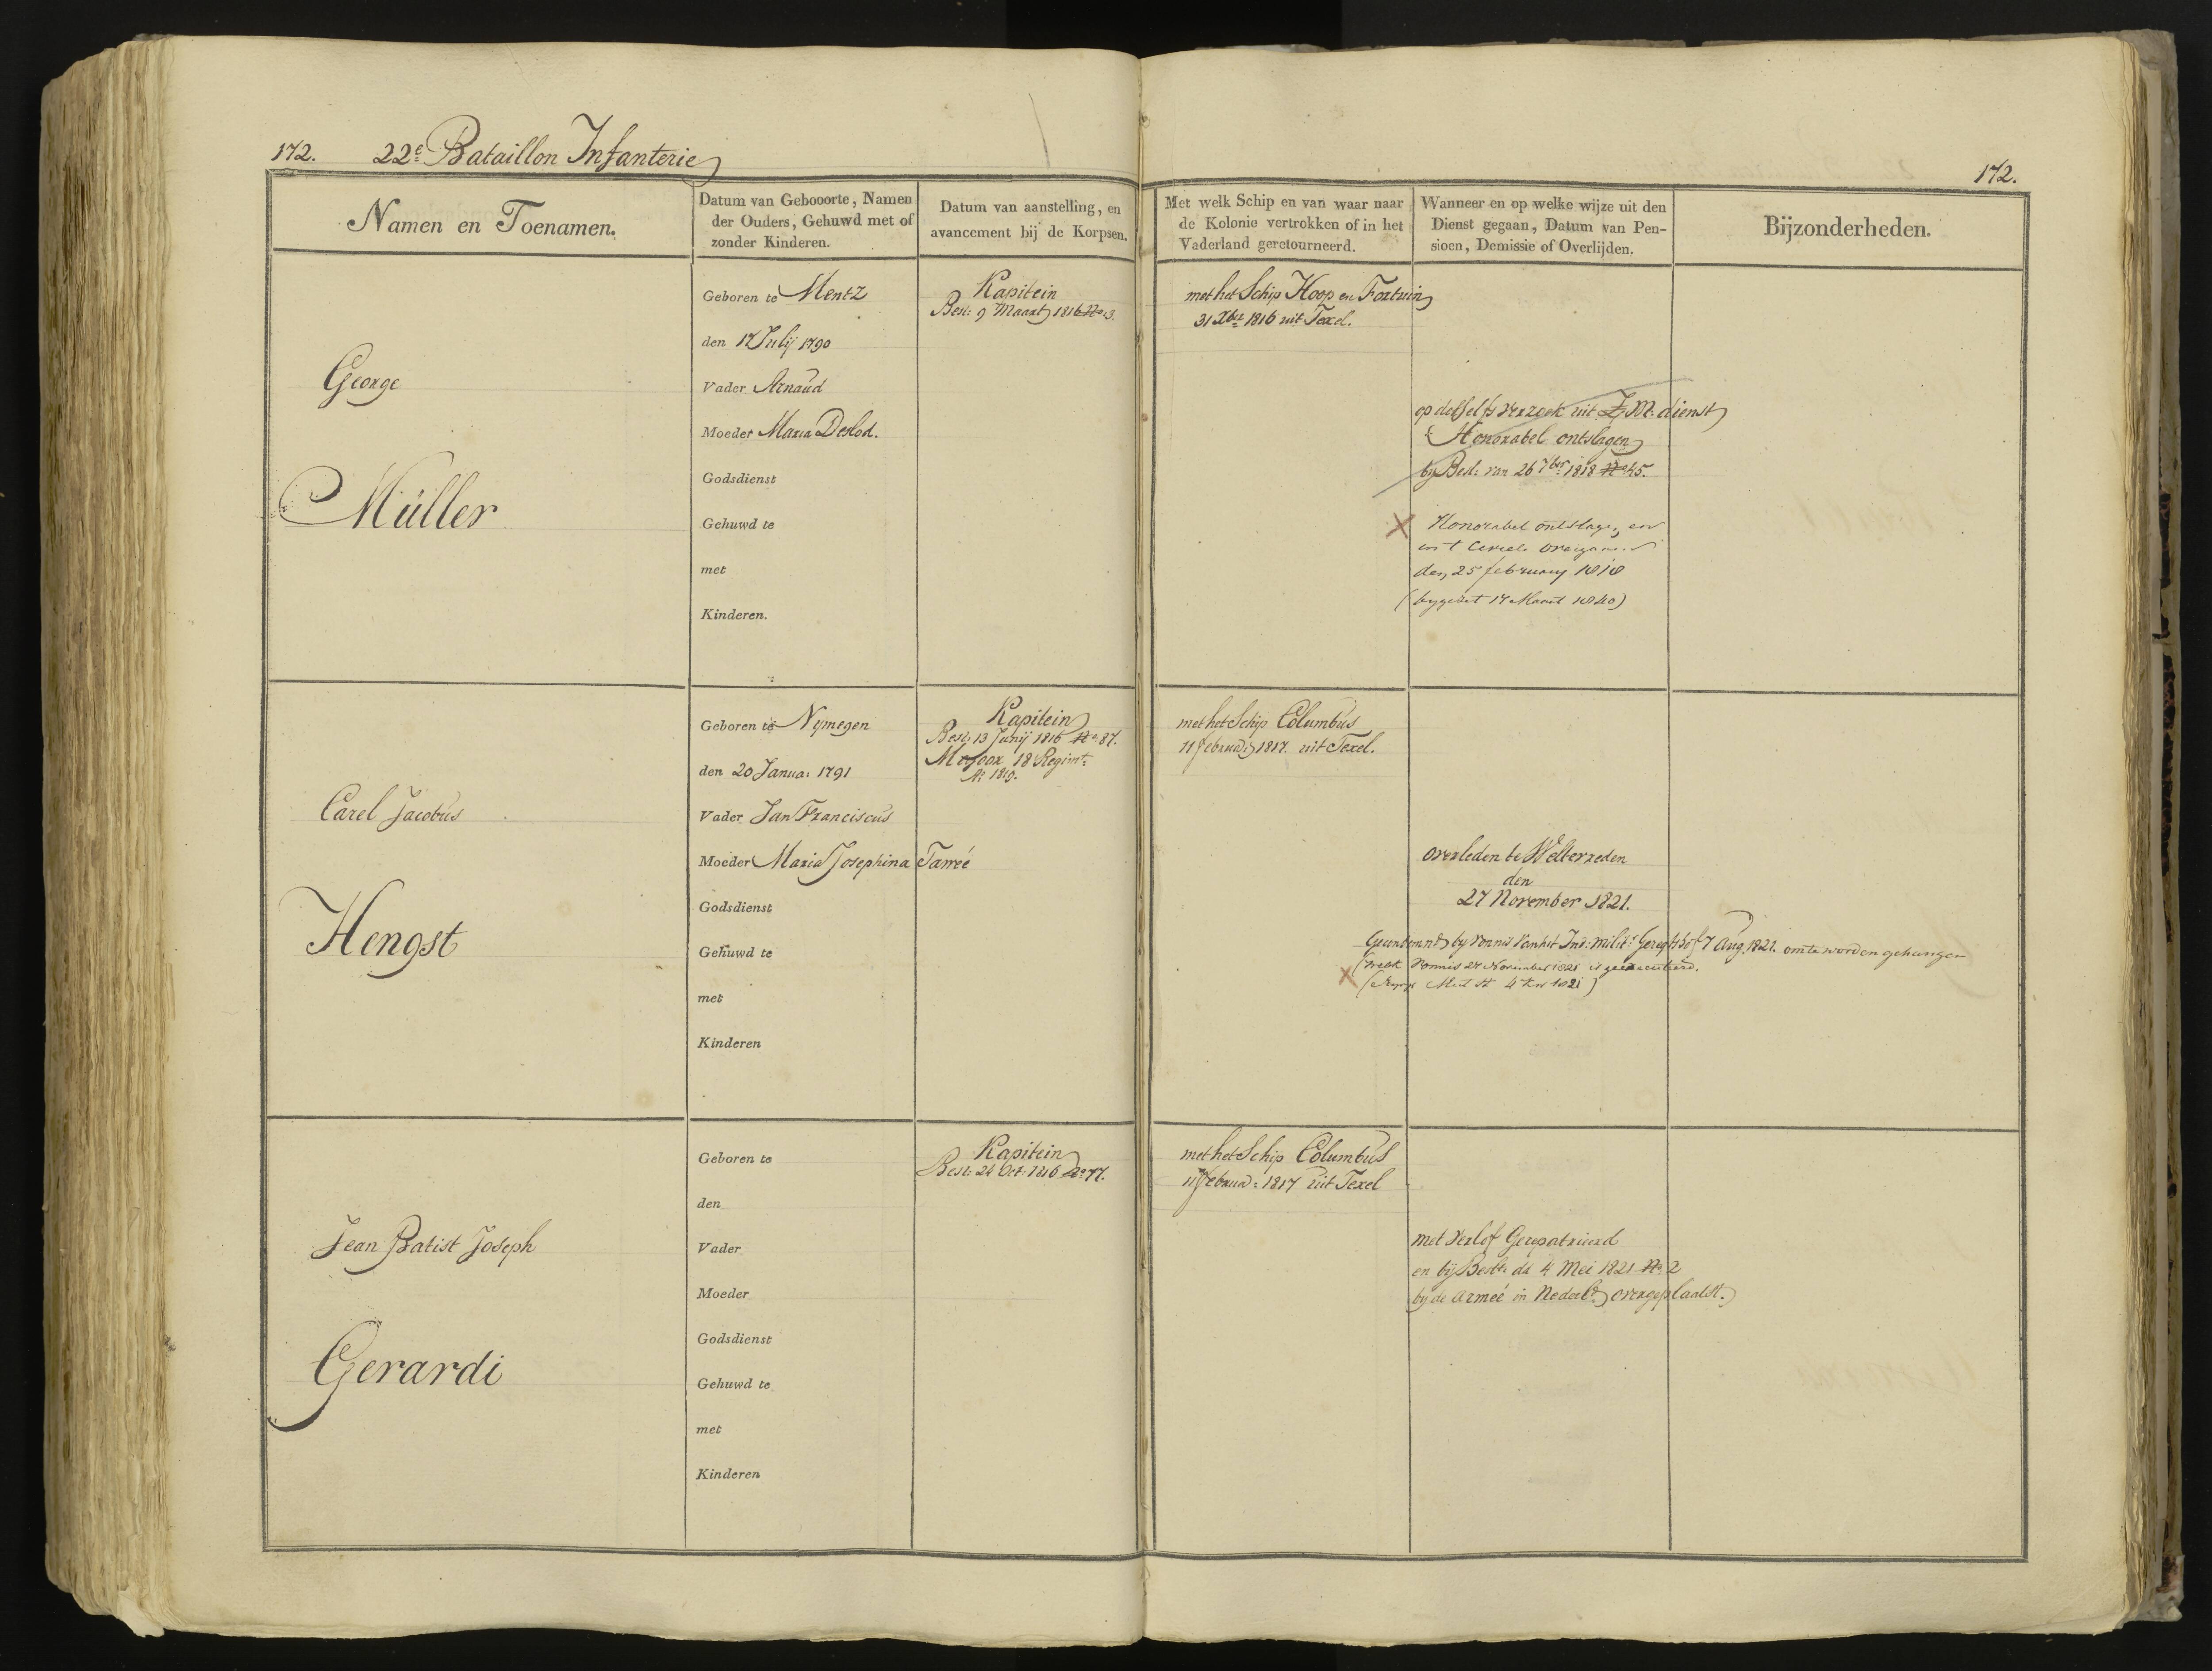 172. 22e Bataillon Infanterie
172.
Namen en Toenamen.
Datum van Gebooorte, Namen
der Ouders, Gehuwd met of
zonder Kinderen.
Datum van aanstelling, en
avancement bij de Korpsen.
Met welk Schip en van waar naar
de Kolonie vertrokken of in het
Vaderland geretourneerd.
Wanneer en op welke wijze uit den
Dienst gegaan, Datum van Pen-
sioen, Demissie of Overlijden.
Bijzonderheden.
George
Müller
Geboren te Mentz
den 17 Julij 1790
Vader Arnaud
Moeder Maria Deslod.
Godsdienst
Gehuwd te
met
Kinderen.
Kapitein
Besl: 9 Maart 1816 No 3.
met het Schip Hoop en Fortuin
31 Xber 1816 uit Texel.
op deszelfs verzoek uit Z M. dienst
Honorabel ontslagen
bij Besl: van 26 7ber 1818 No 45.
Honorabel ontslagen en
in 't
den 25 february 1818
(bygezet 17 Maart 1840)
Carel Jacobus
Hengst
Geboren te Nymegen
den 20 Janua: 1791
Vader Jan Franciscus
Moeder Maria Josephina Tarreé
Godsdienst
Gehuwd te
met
Kinderen
Kapitein
Besl: 13 Junij 1816 No 87.
Majoor 18 Regimt:
Ao 1819.
met het Schip Columbus
11 februa: 1817. uit Texel.
overleden te Welterreden
den
27 November 1821.
by Vonnis van het Ind: Milit: Geregtshof 7 Aug. 1821. om te worden gehangen
(welk Vonnis 27 November 1821 is geexecuteerd.
1821)
Jean Batist Joseph
Gerardi
Geboren te
den
Vader
Moeder
Godsdienst
Gehuwd te
met
Kinderen
Kapitein
Besl: 24 Oct: 1816 No 77.
met het Schip Columbus
11 februa: 1817 uit Texel
met verlof Gerepatrieerd
en bij Beslt: da 4 Mei 1821 No 2
by de armeé in Nederld. overgeplaatst.